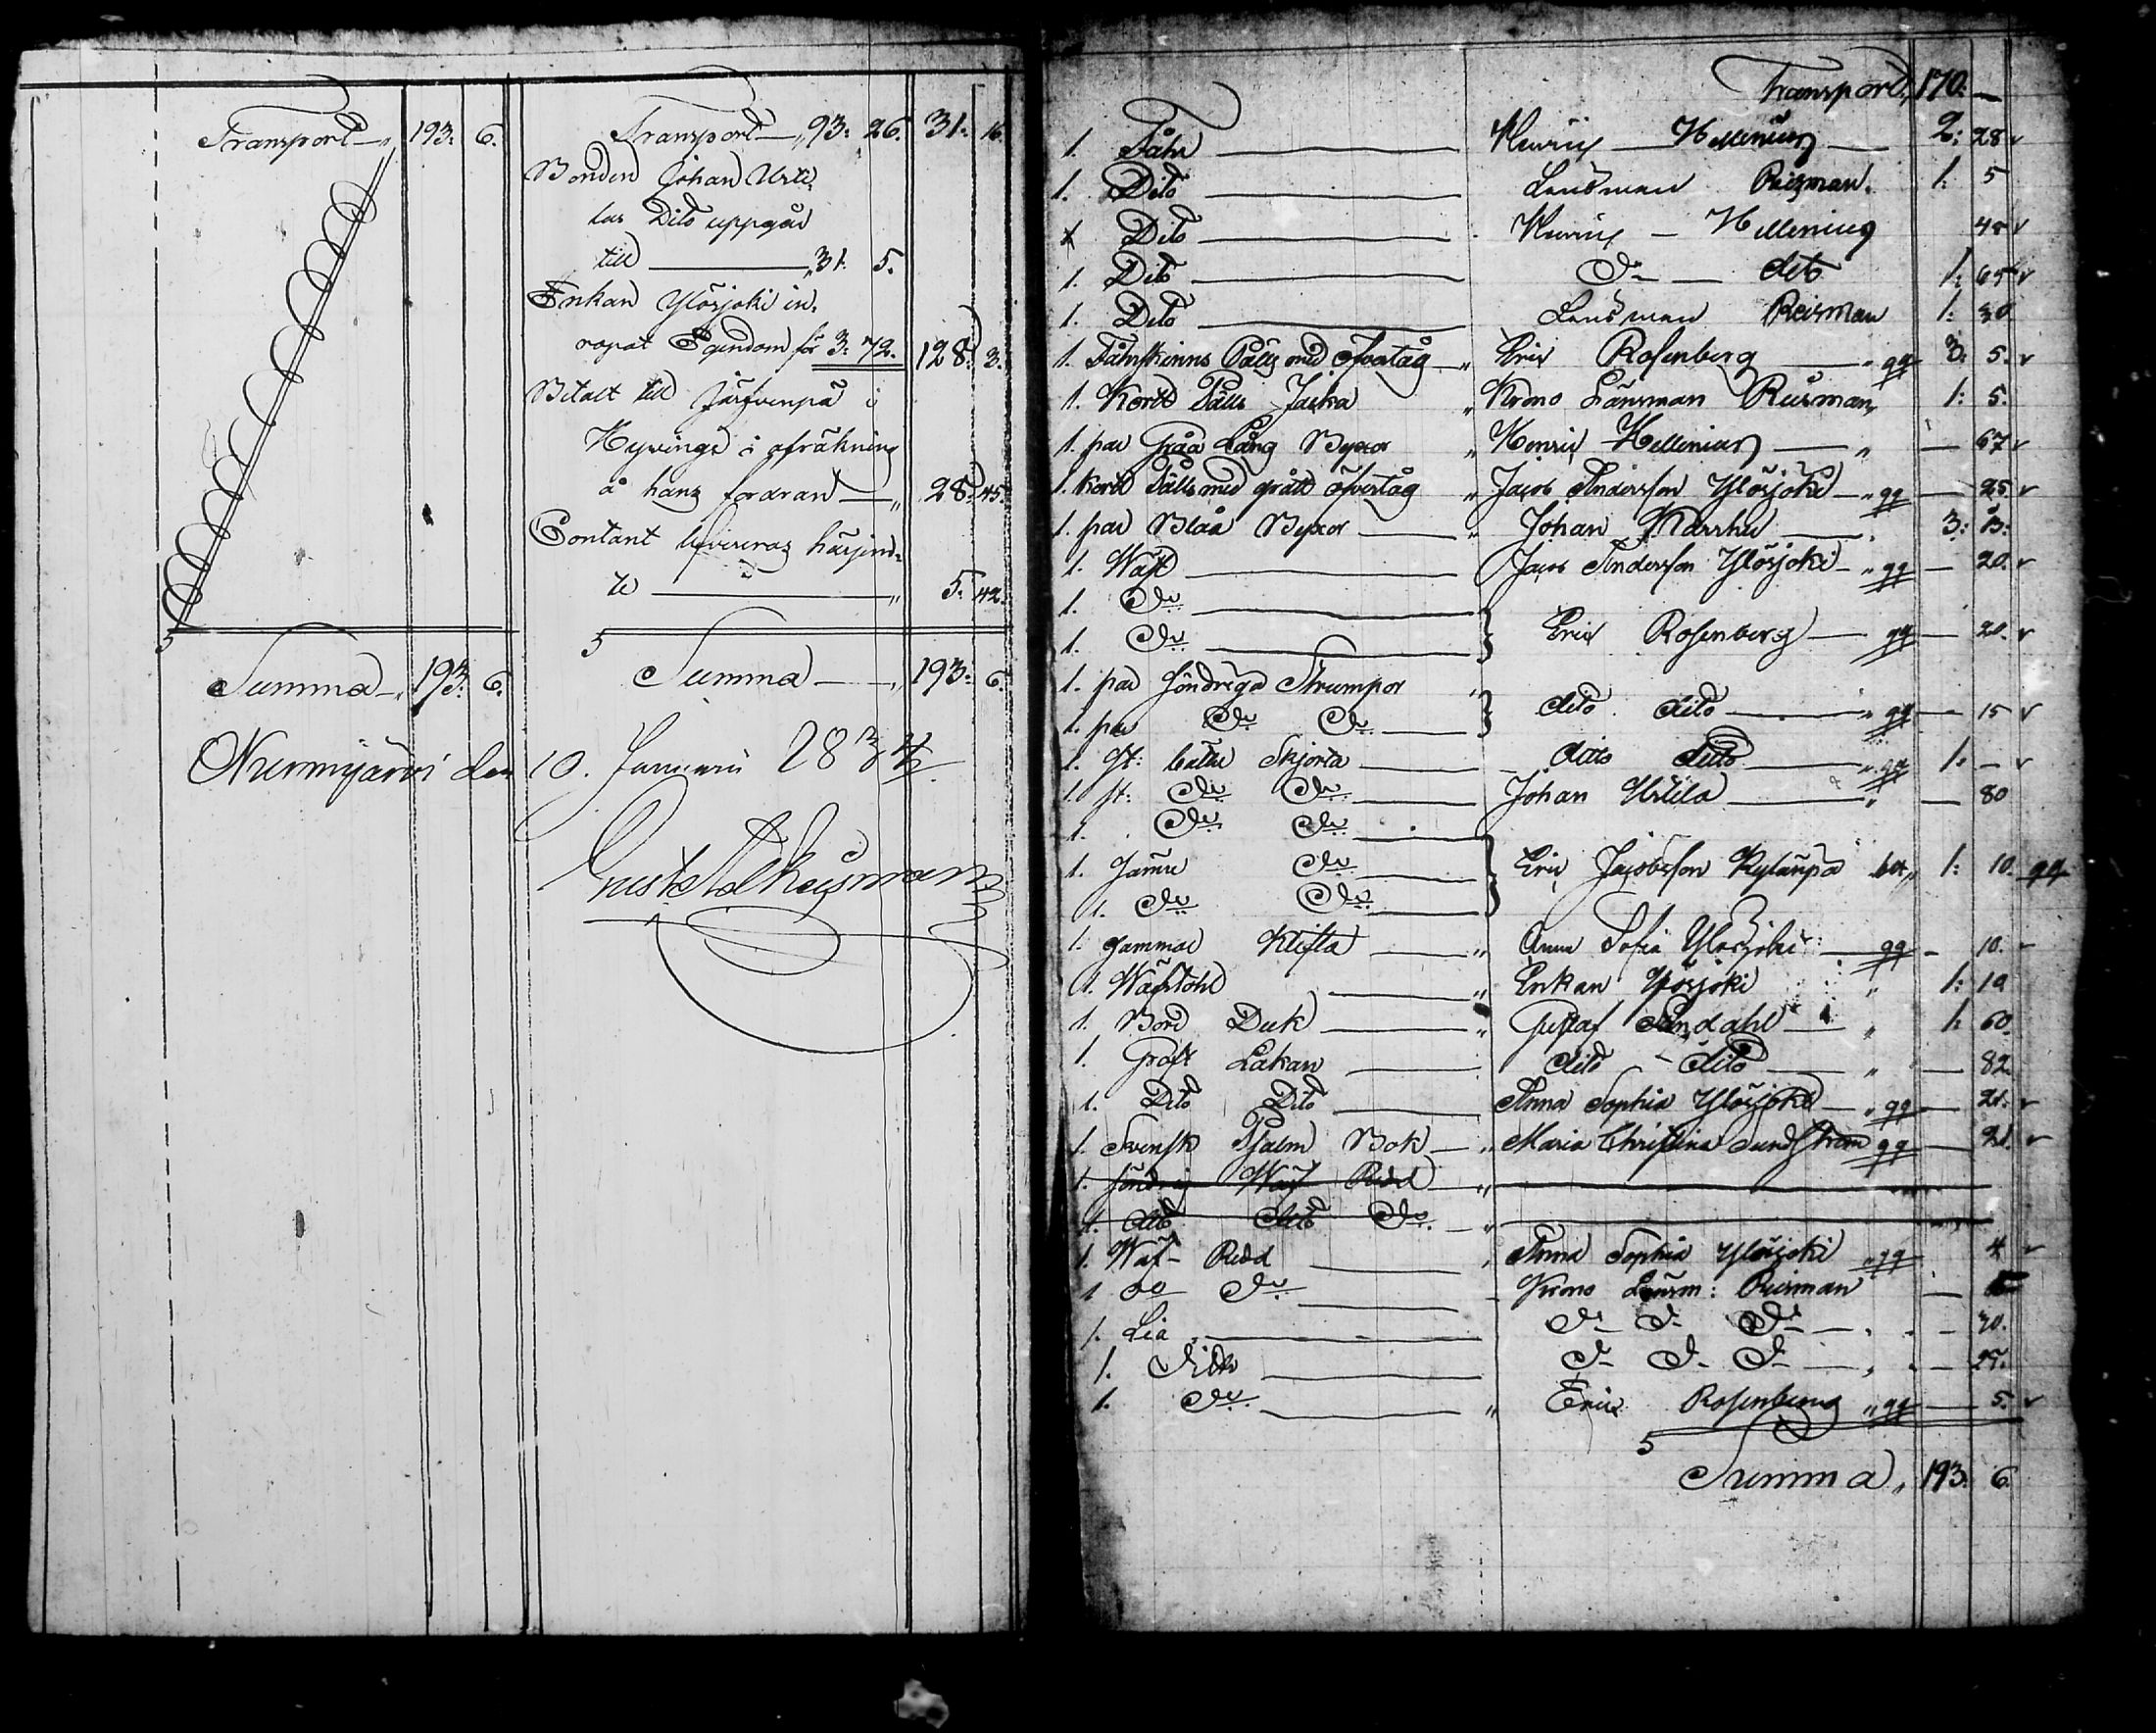 Transport " 193: 6.
Summa " 193: 6.
Transport " 93: 26. 31: 16.
Bonden Johan Urti,
las Dito uppgår
till " 31. 5.
Enkan Ylösjoki in,
ropat Egendom för 3: 72. 128: 3.
Betalt till Järfvenpä i
Hyvinge i afräkning
å hans fordran " 28: 45.
Contant lefvereras härjem,
te " 5: 42.
Summa " 193: 6.
Nurmijärvi den 10. Januari 1834.
Transport, 170: —
1. Fåhr Henric Hellenius 2: 28 v
1. Dito Länsman Reisman. 1: 5
1. Dito Henric Hellenius 48 v
1. Dito Do dito 1: 65 v
1. Dito Länsman Reisman 1: 30
1. Fåhrskinns Päls med öfvertåg " Eric Rosenberg " gg 3: 5. v
1. Kort Päls Jacka " Krono Länsman Reisman, 1: 5.
1. par Gråa Lång Byxor " Henric Hellenius " — 67 v
1. Kort Päls med grått öfvertåg " Jacob Andersson Ylösjoki " gg — 25 v
1. par Blåa Byxor " Johan Karhu 3: 13:
1. Wäst Jacob Andersson Ylösjoki " gg — 20. v
1. Do
1. Do } Eric Rosenberg gg — 20. v
1. par Söndriga Strumpor "
1. par Do Do } dito dito " gg — 15 v
1. St: bättre Skjorta dito dito " gg 1: — v
1. st: Do Do Johan Urtila " — 80
1. Do Do
1. Sämre Do } Eric Jacobsson Kylänpä bet " 1: 10. gg
1. Do Do
1. gammal Klifta " Anna Sofia Ylösjoki gg — 10. v
1. Wäfstohl " Enkan Ylösjoki " 1: 10
1. Bord Duk " Gustaf Sandahl " 1: 60.
1. Groft Lakan dito dito " — 82.
1. Dito Dito Anna Sophia Ylösjoki " gg — 21. v
1. Svensk Psalm Bok " Maria Christina Sundström gg — 21. v
1. Söndrig Wäf Redd "
1. dito dito Do "
1. Wäf- Redd Anna Sophia Ylösjoki " gg 4 v
1 do Do Krono Länsm: Reisman —
1. Lia Do Do Do — 40.
1. Dito Do Do Do " — 25.
1. Do " Eric Rosenberg " gg — 5. v
Summa " 193. 6.